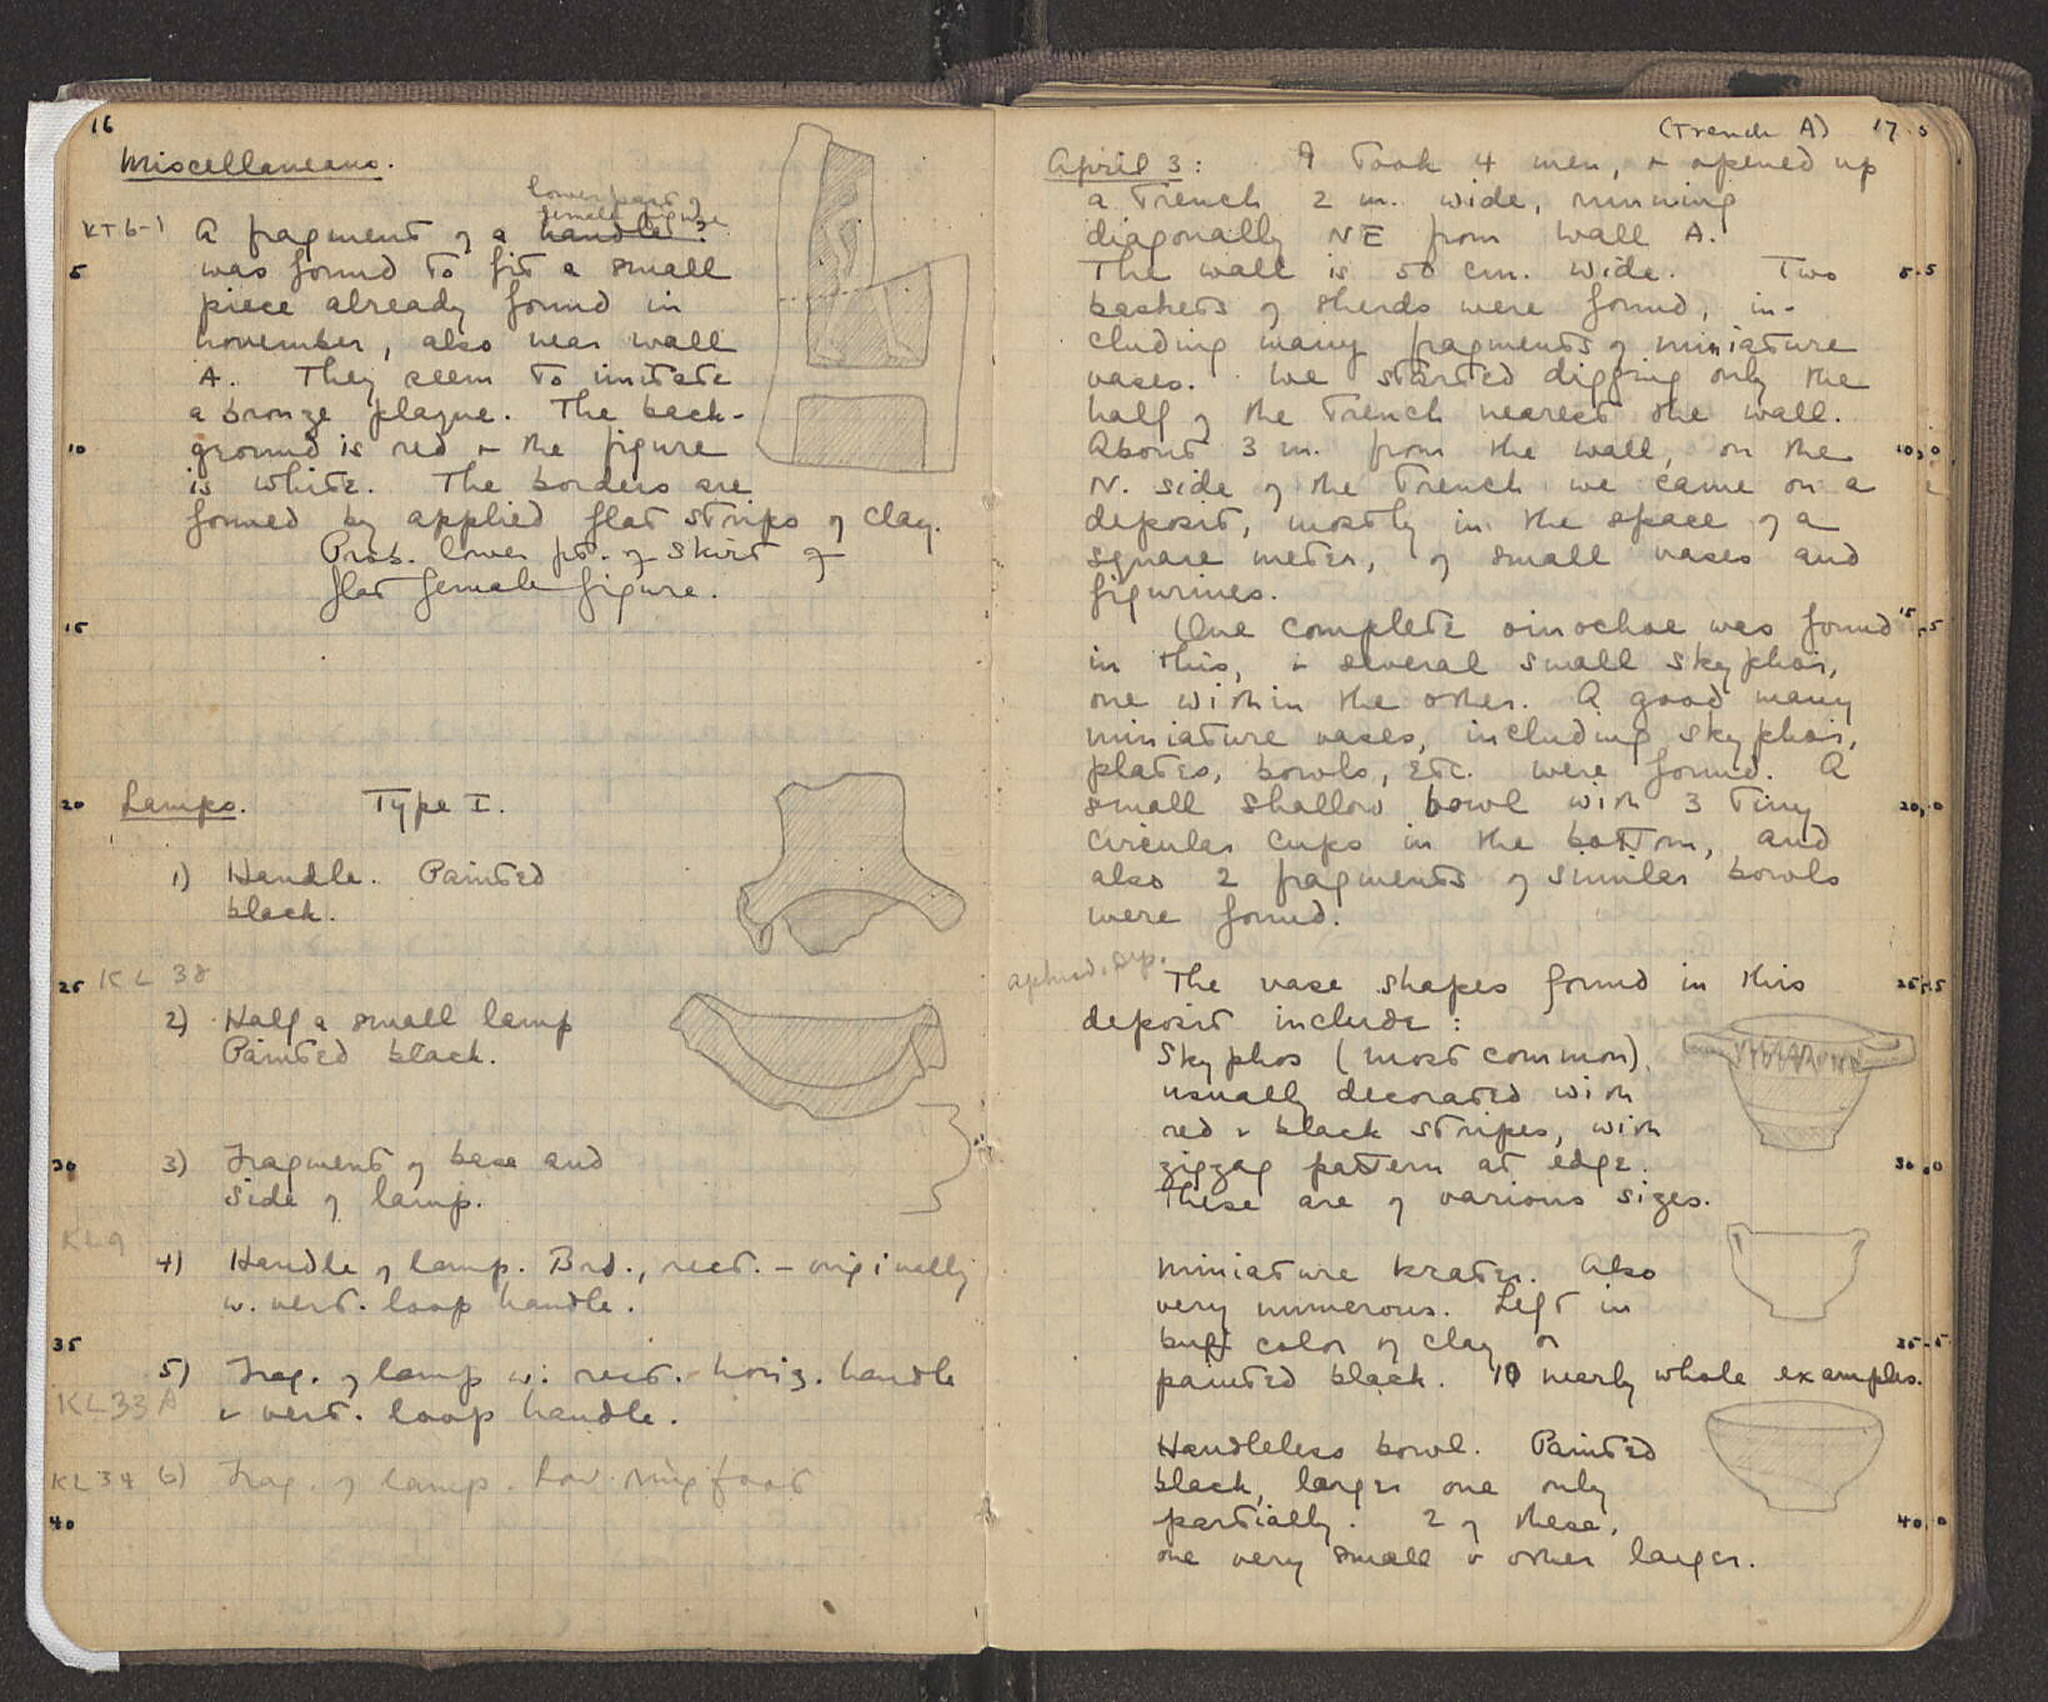 16
Miscellaneous.
lower part of
female figure
KT6-1 A fragment of a handle?
5 was found to fit a small
piece already found in
November, also near wall
A. They seem to imitate
a bronze plaque. The back-
10 ground is red + the figure
is white. The borders are
formed by applied flat strips of clay.
Prob. lower pt. of skirt of
flat female figure.
15
20 Lamps. Type I.
1) Handle. Painted
black.
25 KL 38
2) Half a small lamp
Painted black.
30 3) Fragment of base and
side of lamp.
KL9
4) Handle of lamp. Brd., rect. - originally
w. vert. loop handle.
35
5) Frag. of lamp w. rect. horiz. handle
KL33A + vert. loop handle.
KL34 6) Frag. of lamp. Low ring foot
40
(Trench A) 17
April 3: I took 4 men, + opened up
a trench 2 m. wide, running
diagonally NE from wall A.
The wall is 50 cm. wide. Two 5
baskets of sherds were found, in-
cluding many fragments of miniature
vases. We started digging only the
half of the trench nearest the wall.
About 3 m. from the wall, on the 10
N. side of the trench we came on a
deposit, mostly in the space of a
square meter, of small vases and
figurines.
One complete oinochoe was found 15
in this, + several small skyphoi,
one within the other. A good many
miniature vases, including skyphoi,
plates, bowls, etc. were found. A
small shallow bowl with 3 tiny 20
circular cups in the bottom, and
also 2 fragments of similar bowls
were found.
aphrod. dep. The vase shapes found in this 25
deposit include:
Skyphos (most common).
usually decorated with
red + black stripes, with
zigzag pattern at edge. 30
These are of various sizes.
Miniature krater. Also
very numerous. Left in
buff color of clay or 35
painted black. 10 nearly whole examples.
Handleless bowl. Painted
black, larger one only
partially. 2 of these, 40
one very small + other larger.